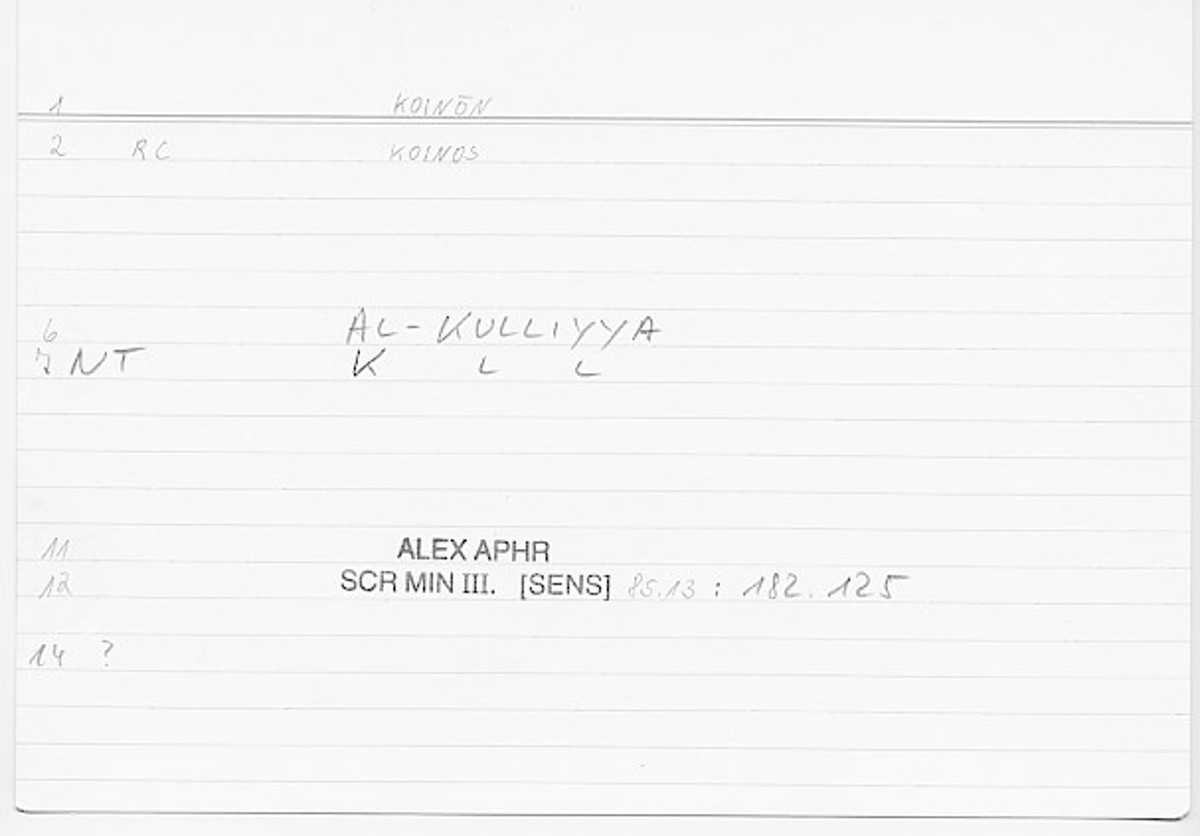 1 KOINŌN
2 RC KOINOS
6 AL-KULLIYYA
7 NT K L L
11 ALEX APHR
12 SCR MIN III. [SENS] 85.13 : 182.125
14 ?